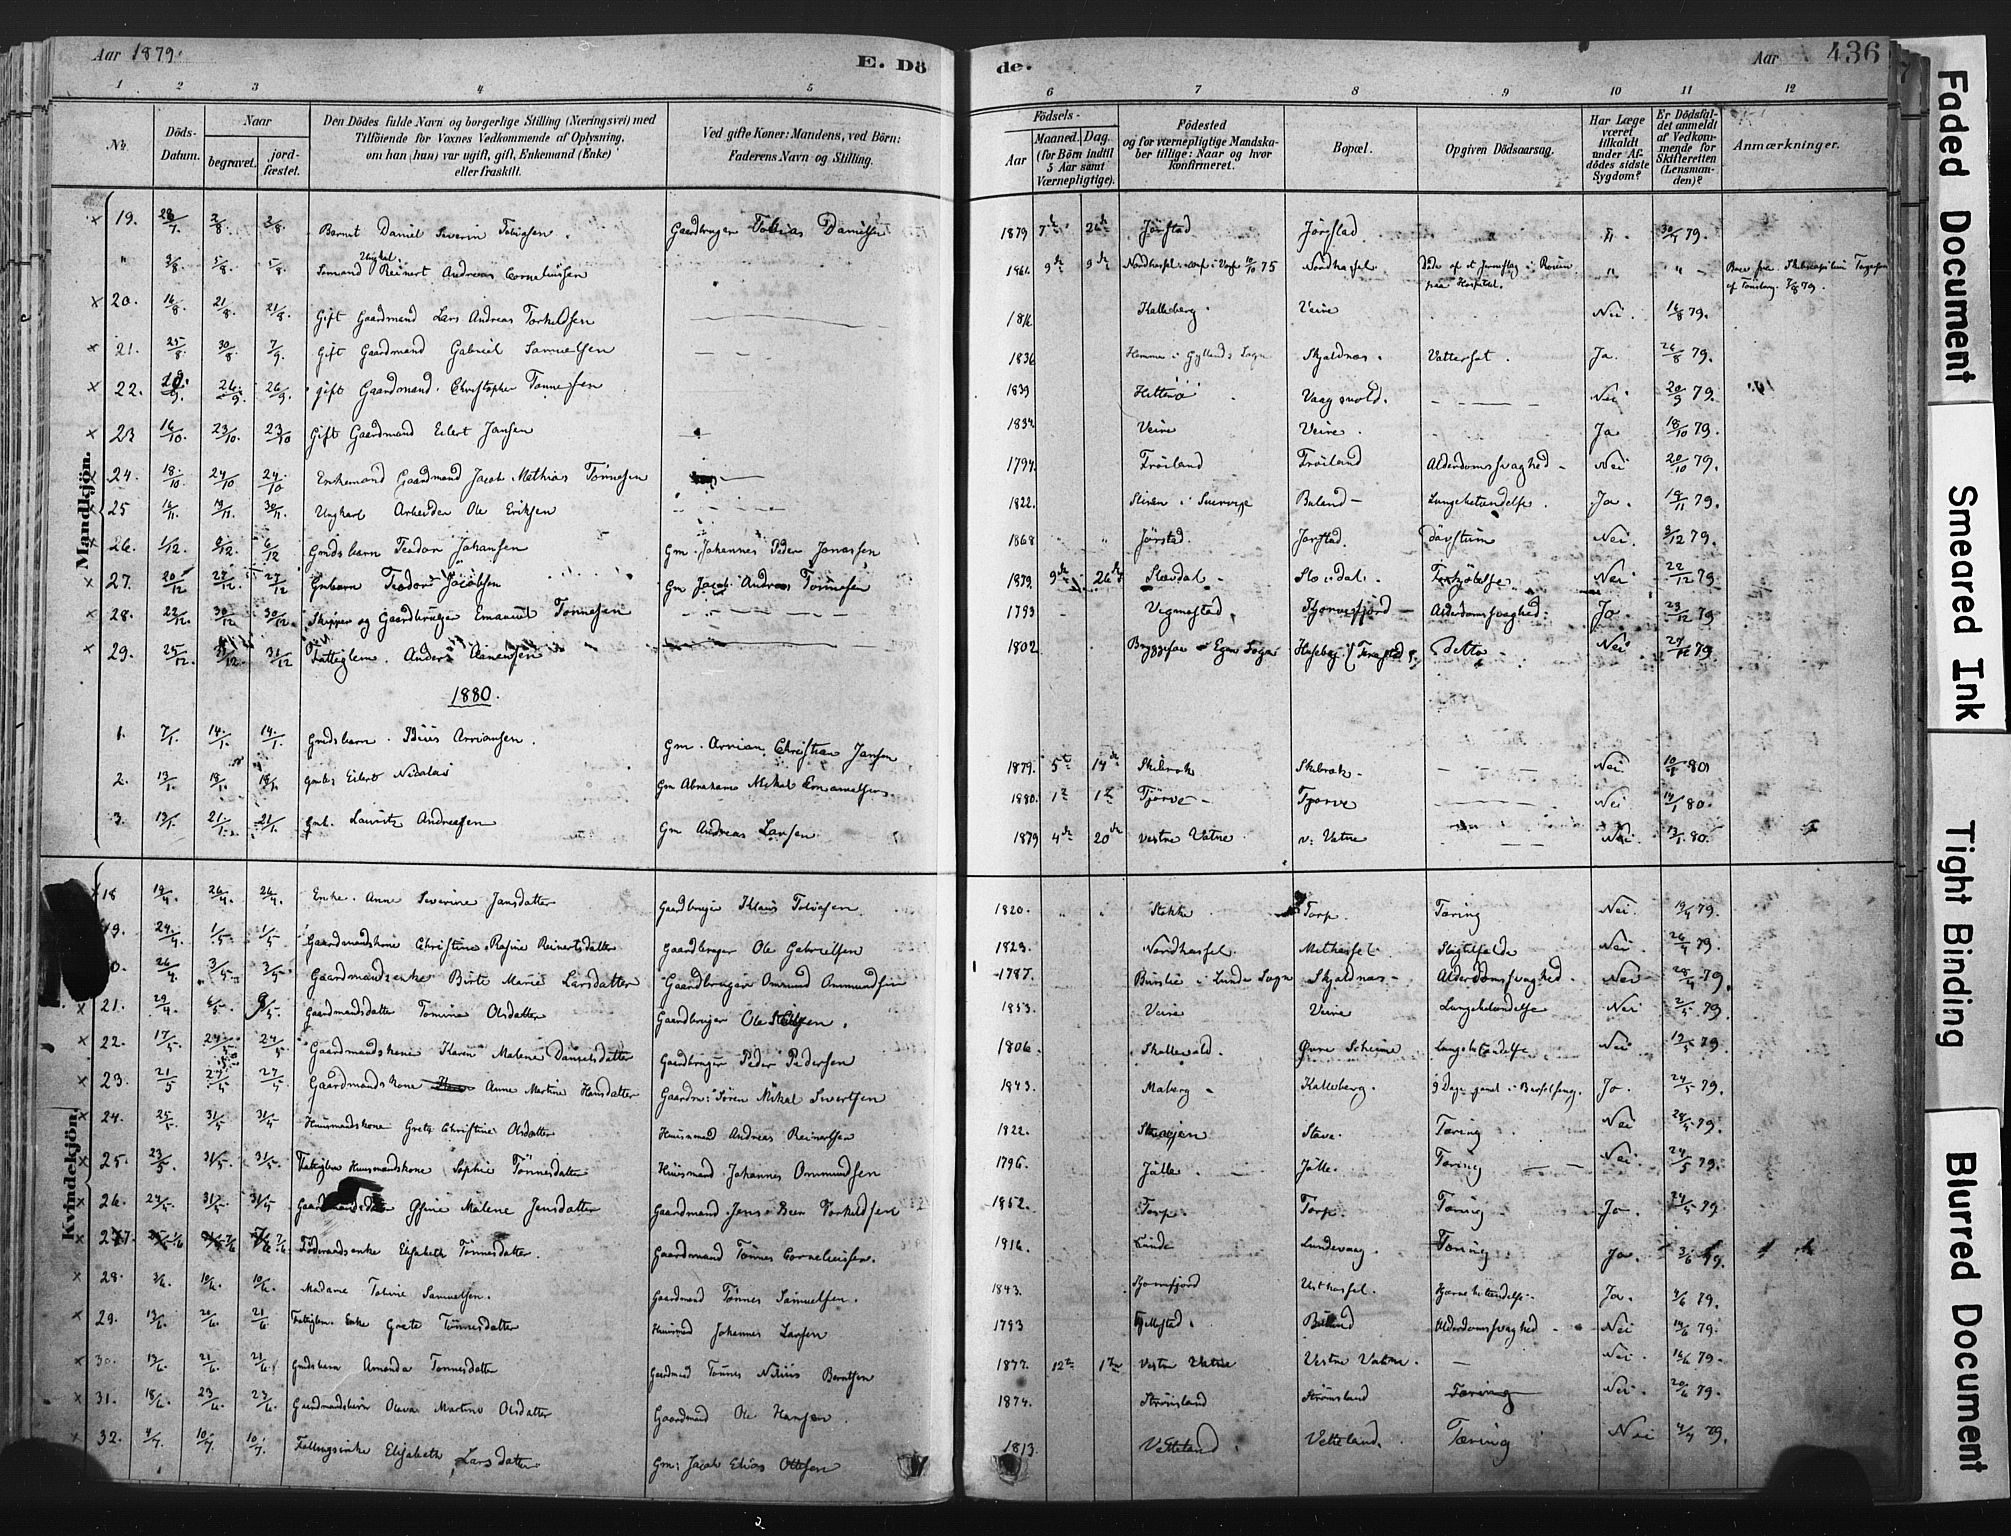 Aar 1879.
E. Dö
de.
Aar
436
1 2 3 4 5
6 7 8 9 10 11 12
No.
Döds-Datum.
Naar
begravet.
jord-fæstet.
Den Dödes fulde Navn og borgerlige Stilling (Næringsvei) med
Tilföiende for Voxnes Vedkommende af Oplysning,
om han (hun) var ugift, gift, Enkemand (Enke)
eller fraskilt.
Ved gifte Koner: Mandens, ved Börn:
Faderens Navn og Stilling.
Födsels-
Aar
Maaned. Dag.
(for Börn indtil
5 Aar samt
Værnepligtige).
Födested
og for værnepligtige Mandska-
ber tillige: Naar og hvor
konfirmeret.
Bopæl.
Opgiven Dödsaarsag.
Har Læge
været
tilkaldt
under Af-
dödes sidste
Sygdom?
Er Dödsfal-
det anmeldt
af Vedkom-
mende for
Skifteretten
(Lensman-
den)?
Anmærkninger.
Mandkjön.
19. 2/8. 2/8. Barnet Daniel Severin Tobiasen. Gaardbruger Tobias Danielsen 1879 7de 26de Jørstad Jørstad. " 30/7 79.
" 3/8. 5/8. 5/8. Ugift Sømand Reinert Andreas Corneliussen 1861 9de 9de Nordhassel 75 Nordhassel
20. 16/8. 21/8. 21/8. Gift Gaardmand Lars Andreas Torkildsen 1816 Kalleberg. Veire Nei. 16/8 79.
21. 25/8. 30/8. 7/9. Gift Gaardmand Gabriel Samuelsen 1836 Skjoldnæs. Vattersot. Ja. 26/8 79.
22. 26/9. 26/9. gift Gaardmand Christopher Tønnessen 1839 Hitterø Vaagsvold. Nei 20/9 79.
23 16/10. 23/10. 23/10 Gift Gaardmand Eilert Jansen 1834 Veire Veire. Ja 18/10 79.
24. 18/10. 24/10 24/10 Enkemand Gaardmand Jacob Mathias Tønnesen 1794. Frøiland Frøiland Alderdomssvaghed - Nei 20/10 79.
25 16/11. 19/11. 30/11. Ungkarl Arbeider Ole Eriksen 1822. Buland - Lungebetændelse. Ja. 19/11 79.
26. 1/12. 6/12. 6/12 Gmdsbarn Teodor Johansen Gm. Johannes Peder Jonassen 1868 Jørstad. Jørstad. Nei. 3/12 79.
27. 20/12 27/12. 27/12 Gmbarn Teodor Jacobsen Gm Jacob Andreas Tønnesen 1879. 9de 26de Slevdal - Slevdal. Nei 22/12 79.
28. 22/12. 30/12 30/12 Skipper og Gaardbruger Emanuel Tønnesen 1793 Vegmostad. Alderdomssvaghed. Ja. 23/12 79
29. 25/12. 31/12. 31/12 Fattiglem. Anders Aanensen 1802 Detto Nei 27/12 79.
1880.
1. 7/1. 14/1. 14/1. Gmdsbarn. Arriansen. Gm. Arrian Christian Jansen 1879. 5te 14de Skibrok Skibrok - Nei 10/1 80
2. 13/1. 19/1. 19/1. Gmbs Eilert Nicolai Gm Abraham Mikal 1880. 1te 1te Tjørve - Tjørve Nei 14/1 80.
3. 13/1. 21/1. 21/1. Gmb. Lauritz Andreasen Gm Andreas Larsen 1879 4de 20de vestre Vatne. v. Vatne Nei. 13/1 80.
Kvindekjön.
18 19/4. 26/4. 26/4. Enke. Anne Severine Jansdatter Gaardbruger Tobiasen. 1820. Stokke Torp. Tæring Nei. 19/4 79.
19. 24/4. 1/5. 1/5. Gaardmandskone Christine Rasine Reinertsdatter Gaardbruger Ole Gabrielsen 1823. Nordhassel. Methassel. Nei. 26/4 79.
26/4. 3/5. 3/5. Gaardmandsenke Birte Marie Larsdatter Gaardbruger Omund Ommundsen 1787. Lunde Sogn Skjoldnæs - Alderdomssvaghed. Nei 28/4 79.
21. 29/4. 6/5. 9/5. Gaardmandsdatter Tomine Olsdatter Gaardbruger Ole 1853. Veire Veire Lungebetændelse Nei 2/5 79.
22. 17/5. 24/5. 24/5. Gaardmandskone Karen Malene Danielsdatter Gaardbruger Peder Pedersen 1806. Skollevold. Øvre Lungebetændelse Nei 19/5 79.
23. 21/5 27/5. 27/5. Gaardmandskone Anne Martine Hansdatter Gaardm: Søren Mikal Sivertsen 1843. Maberg - Kalleberg. Ja. 24/5 79.
24. 25/5. 31/5. 31/5. Huusmandskone Grete Christine Olsdatter Huusmand Andreas Reinertsen 1822. Stave. Tæring Nei 28/5 79.
25. 23/5 31/5. 31/5. Fattiglem Huusmandskone Sophie Tønnesdatter Huusmand Johannes Ommundsen 1796. Jølle Jølle. Tæring Nei. 24/5 79.
26. 24/5. 31/5. 31/5 Malene Jansdatter Gaardmand Jens Peer Torkildsen 1852. Torp. Torp. Tæring Ja. 24/5 79
27. Elisabeth Tønnesdatter. Gaardmand Tønnes Corneliussen. 1816. Lunde Lundevaag. Tæring Ja. 3/6 79.
28. 3/6. 10/6. 10/6. Madame Tobine Samuelsen. Gaardmand Tønnes Samuelsen. 1843. Østhassel. Hjernebetændelse. Ja. 4/6 79.
29. 13/6. 20/6. 21/6 Fattiglem. Enke Grete Tønnesdatter Huusmd Johannes Larsen 1793 Fjellestad. Buland Alderdomssvaghed Nei 14/6 79.
30. 13/6. 21/6. 21/6 Gmdsbarn Amanda Tønnesdatter Gaardmd Tønnes Nilius Berntsen 1877. 12te 1te Vestre Vatne Vestre Vatne. Nei. 16/6 79.
31. 18/6. 23/6. 23/6. Gaardmandsbarn Olava Martine Olsdatter Gaardmand Ole Hansen 1874. Strømsland Strømsland Tæring Nei. 20/6 79.
32. 4/7. 10/7. 10/7. Elisabeth Larsdatter Gm: Jacob Elias Ottesen 1813. Vetteland. Vetteland. Tæring Nei 4/7 79.
Faded Document
Smeared Ink
Tight Binding
Blurred Document
2